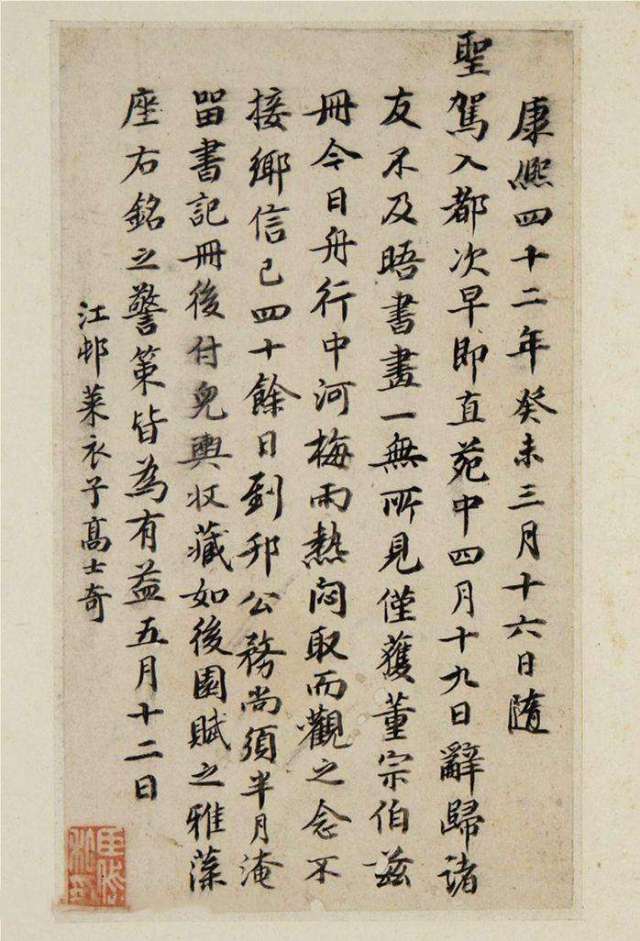 康熙四十二年癸未三月十六日隨
聖駕入都次早即直苑中四月十九日辭歸諸
友不及晤書畫一無所見僅獲董宗伯茲
冊今日舟行中河梅雨熱悶取而觀之念不
接鄉信已四十餘日到邗公務尚須半月淹
留書記冊後付兒輿收藏如後園賦之雅藻
座右銘之警策皆為有益五月十二日
江邨萊衣子高士奇